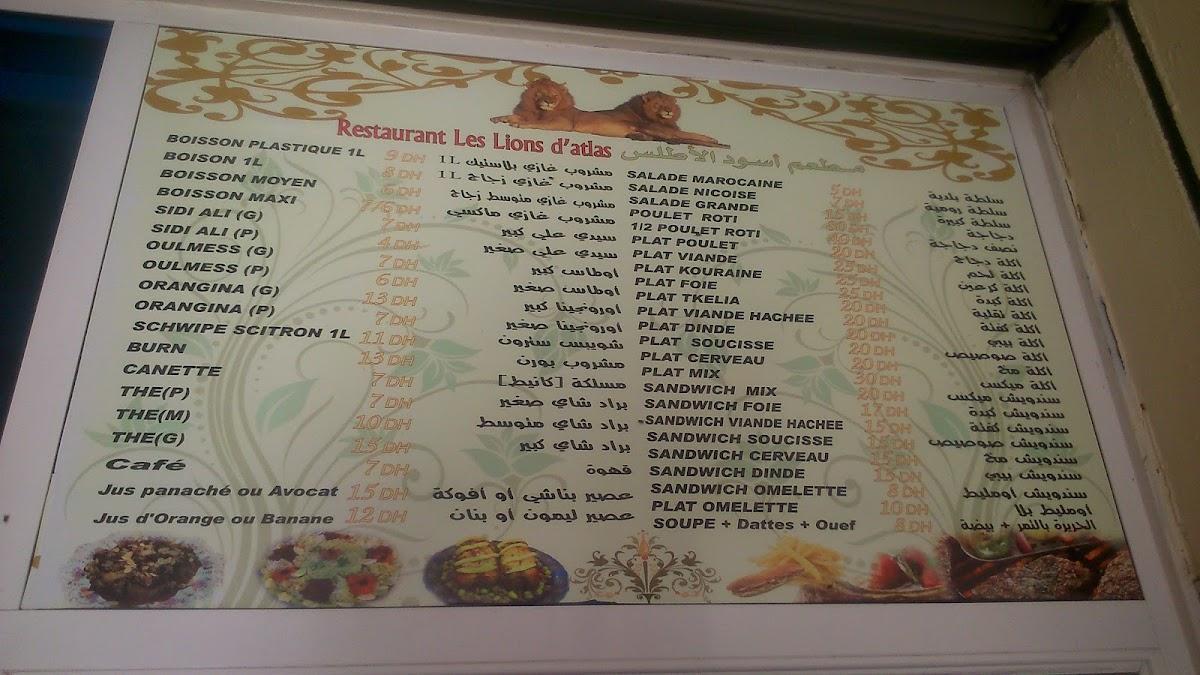 Restaurant Les Lions d'atlas مطعم أسود الأطلس
BOISSON PLASTIQUE 1L 9 DH مشروب غازي بلاستيك 1L
BOISON 1L 8 DH مشروب غازي زجاج 1L
BOISSON MOYEN 6 DH مشروب غازي متوسط زجاج
BOISSON MAXI 7/6 DH مشروب غازي ماكسي
SIDI ALI (G) 7 DH سيدي علي كبير
SIDI ALI (P) 4 DH سيدي علي صغير
OULMESS (G) 7 DH اولماس كبير
OULMESS (P) 6 DH اولماس صغير
ORANGINA (G) 13 DH اورونجينا كبير
ORANGINA (P) 7 DH اورونجينا صغير
SCHWIPE SCITRON 1L 11 DH شويبس سترون
BURN 13 DH مشروب بورن
CANETTE 7 DH [كانيط]
THE(P) 7 DH براد شاي صغير
THE(M) 10 DH براد شاي متوسط
THE(G) 15 DH براد شاي كبير
Café 7 DH قهوة
Jus panaché ou Avocat 15 DH عصير بناشي او افوكة
Jus d'Orange ou Banane 12 DH عصير ليمون او بنان
SALADE MAROCAINE 5 DH سلطة بلدية
SALADE NICOISE 7 DH سلطة رومية
SALADE GRANDE 15 DH سلطة كبيرة
POULET ROTI دجاجة
1/2 POULET ROTI نصف دجاجة
PLAT POULET 20 DH اكلة دجاج
PLAT VIANDE 25 DH اكلة لحم
PLAT KOURAINE 25 DH اكلة كرعين
PLAT FOIE 25 DH اكلة كبدة
PLAT TKELIA 20 DH اكلة تقلية
PLAT VIANDE HACHEE 20 DH اكلة كفتة
PLAT DINDE 20 DH اكلة بيبي
PLAT SOUCISSE 20 DH اكلة صوصيص
PLAT CERVEAU 20 DH اكلة مخ
PLAT MIX 30 DH اكلة ميكس
SANDWICH MIX 20 DH سندويش ميكس
SANDWICH FOIE 17 DH سندويش كبدة
SANDWICH VIANDE HACHEE 15 DH سندويش كفتة
SANDWICH SOUCISSE 15 DH سندويش صوصيص
SANDWICH CERVEAU 15 DH سندويش مخ
SANDWICH DINDE 15 DH سندويش بيبي
SANDWICH OMELETTE 8 DH سندويش اومليط
PLAT OMELETTE 10 DH اومليط بلا
SOUPE + Dattes + Ouef 8 DH الحريرة بالتمر + بيضة